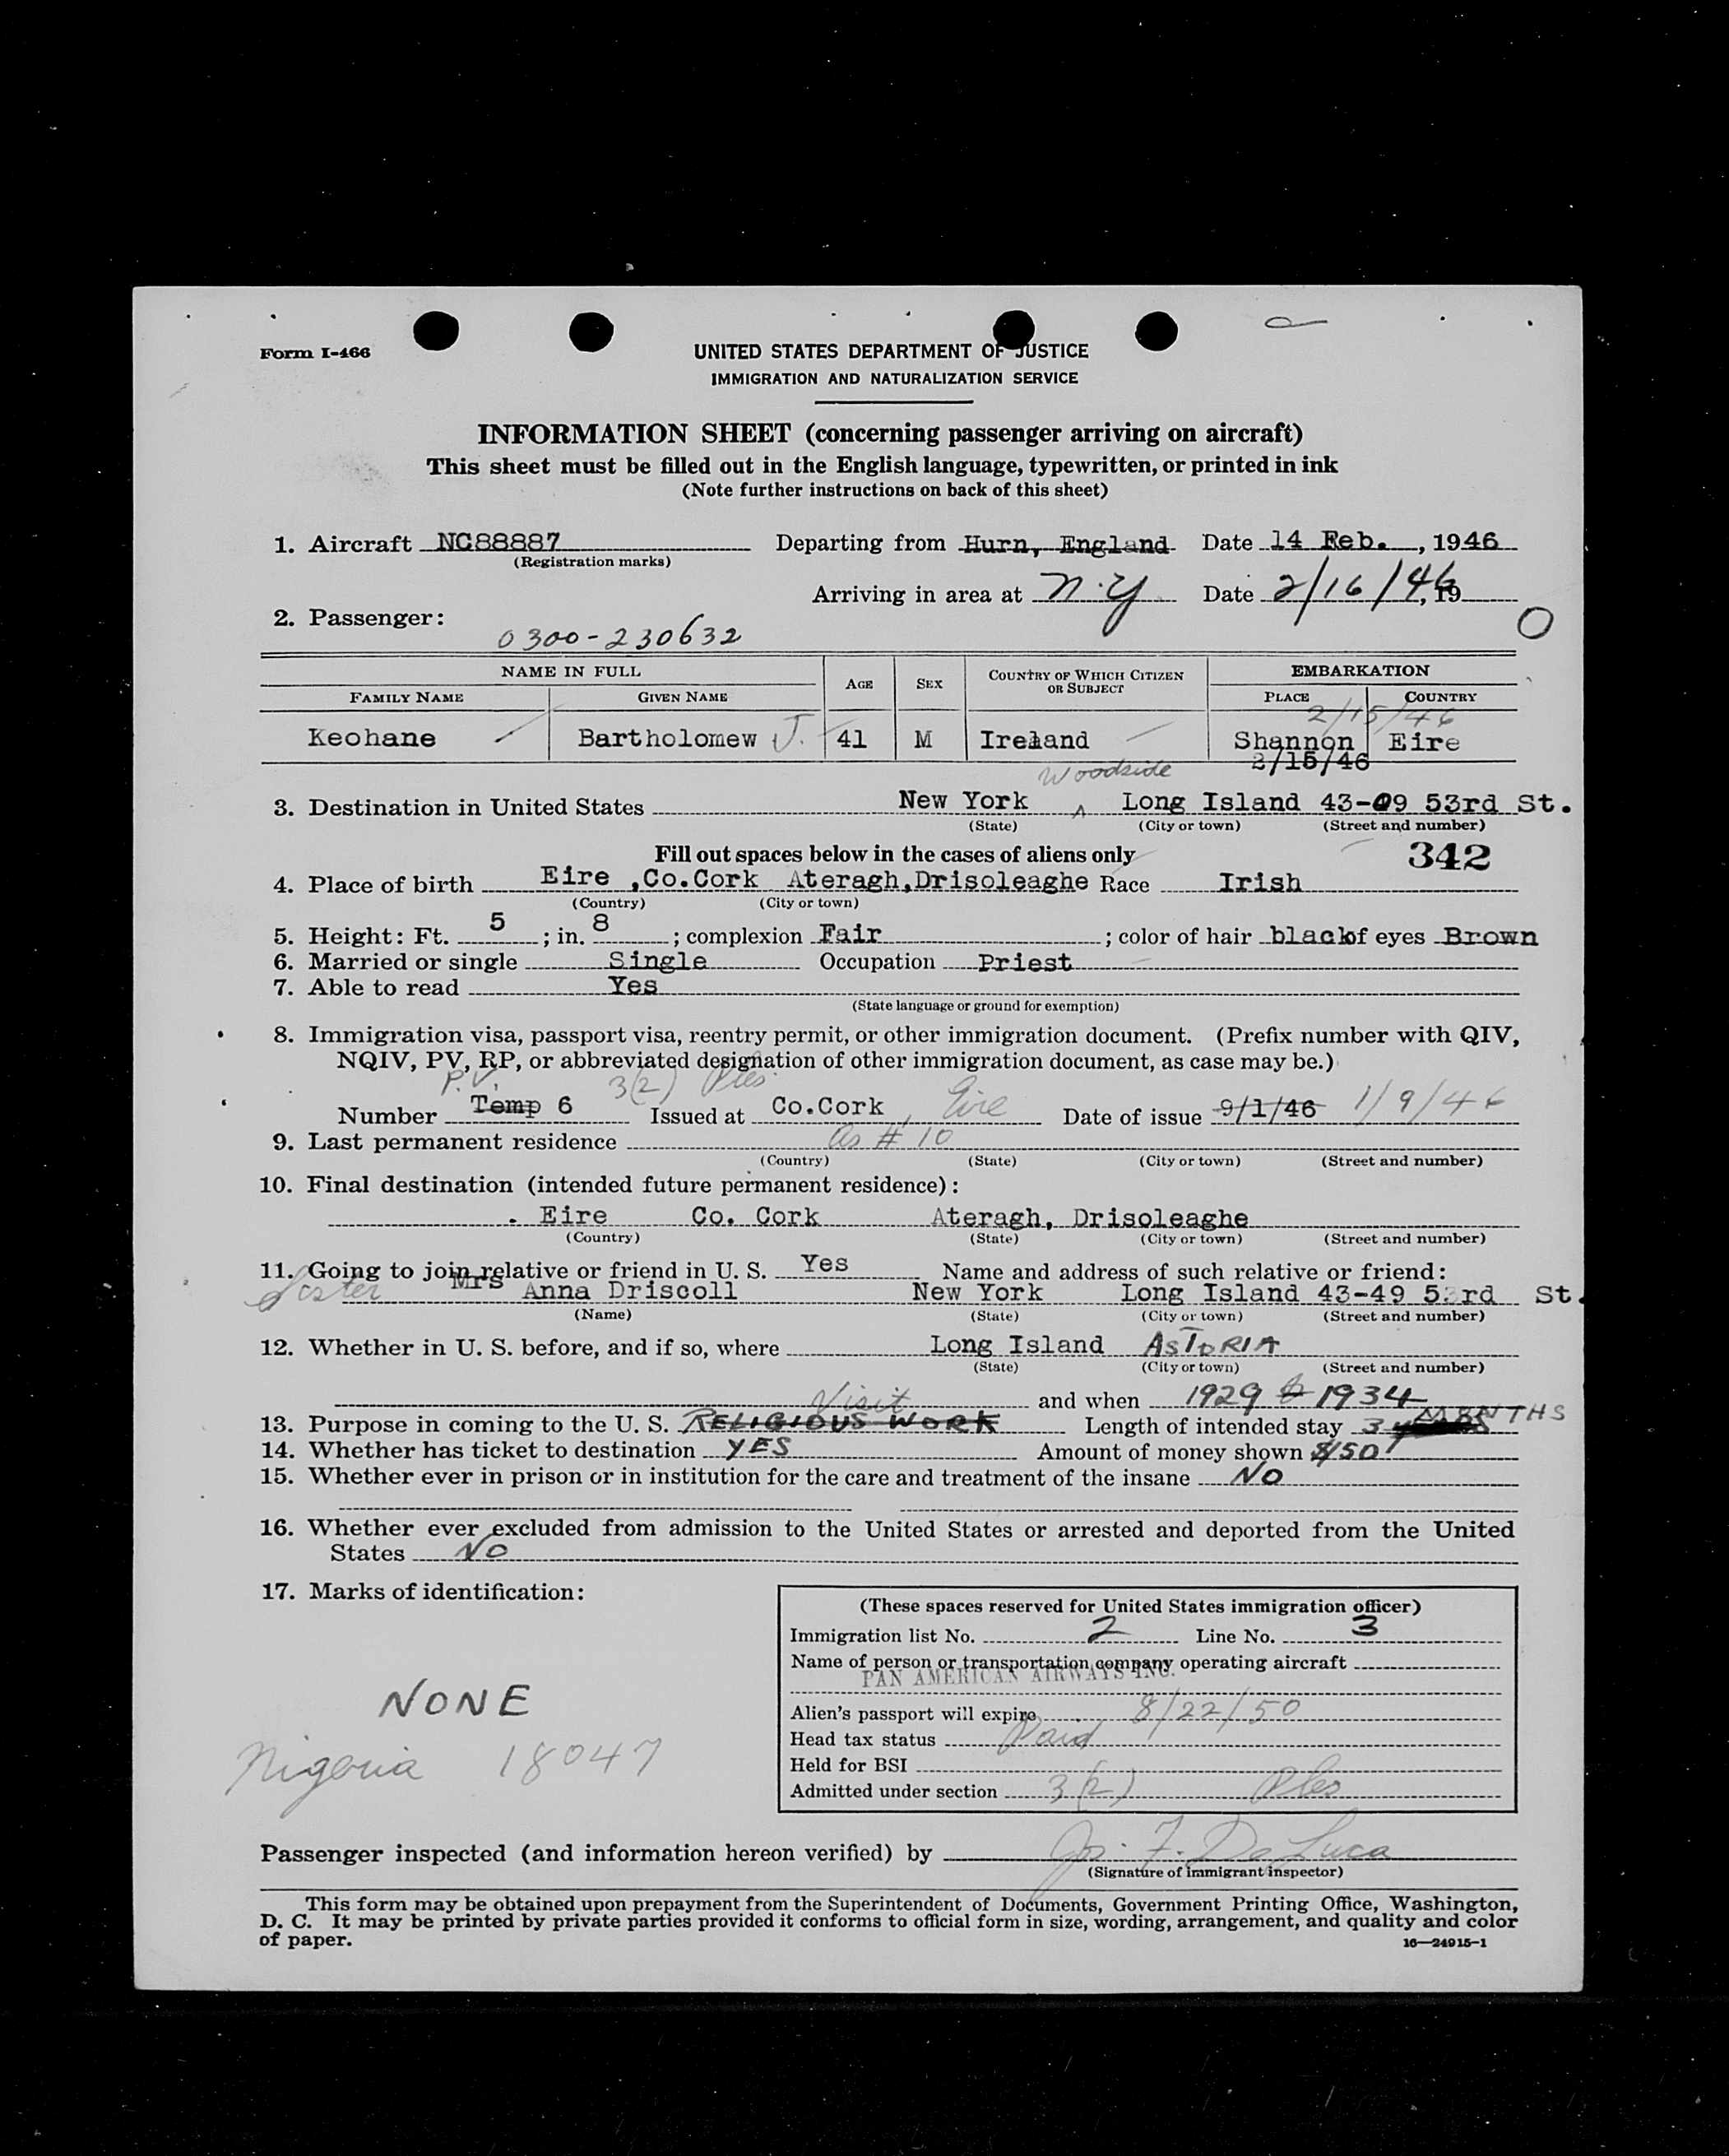 Form I-466
UNITED STATES DEPARTMENT OF JUSTICE
IMMIGRATION AND NATURALIZATION SERVICE
INFORMATION SHEET (concerning passenger arriving on aircraft)
This sheet must be filled out in the English language, typewritten, or printed in ink
(Note further instructions on back of this sheet)
1. Aircraft NC88887 Departing from Hurn, England Date 14 Feb. , 1946
(Registration marks)
Arriving in area at N.Y Date 2/16/46, 19
2. Passenger:
0300-230632 O
NAME IN FULL AGE SEX COUNTRY OF WHICH CITIZEN OR SUBJECT EMBARKATION
FAMILY NAME GIVEN NAME PLACE COUNTRY
2/15/46
Keohane Bartholomew J. 41 M Ireland Shannon Eire
2/15/46
Woodside
3. Destination in United States New York ^ Long Island 43-09 53rd St.
(State) (City or town) (Street and number)
Fill out spaces below in the cases of aliens only 342
4. Place of birth Eire ,Co.Cork Ateragh,Drisoleaghe Race Irish
(Country) (City or town)
5. Height: Ft. 5 ; in. 8 ; complexion Fair ; color of hair black of eyes Brown
6. Married or single Single Occupation Priest
7. Able to read Yes
(State language or ground for exemption)
8. Immigration visa, passport visa, reentry permit, or other immigration document. (Prefix number with QIV,
NQIV, PV, RP, or abbreviated designation of other immigration document, as case may be.)
P.V. 3(2)
Number Temp 6 Issued at Co.Cork, Eire Date of issue 9/1/46 1/9/46
9. Last permanent residence As # 10
(Country) (State) (City or town) (Street and number)
10. Final destination (intended future permanent residence):
. Eire Co. Cork Ateragh, Drisoleaghe
(Country) (State) (City or town) (Street and number)
11. Going to join relative or friend in U. S. Yes Name and address of such relative or friend:
Sister Mrs Anna Driscoll New York Long Island 43-49 53rd St.
(Name) (State) (City or town) (Street and number)
12. Whether in U. S. before, and if so, where Long Island ASTORIA
(State) (City or town) (Street and number)
Visit and when 1929 to 1934
13. Purpose in coming to the U. S. RELIGIOUS WORK Length of intended stay 3 MONTHS
14. Whether has ticket to destination YES Amount of money shown $150
15. Whether ever in prison or in institution for the care and treatment of the insane NO
16. Whether ever excluded from admission to the United States or arrested and deported from the United
States NO
17. Marks of identification:
NONE
Nigeria 18047
(These spaces reserved for United States immigration officer)
Immigration list No. 2 Line No. 3
Name of person or transportation company operating aircraft
PAN AMERICAN AIRWAYS INC.
Alien's passport will expire 8/22/50
Head tax status Paid
Held for BSI
Admitted under section 3(2)
Passenger inspected (and information hereon verified) by Jos. F. De Luca
(Signature of immigrant inspector)
This form may be obtained upon prepayment from the Superintendent of Documents, Government Printing Office, Washington,
D. C. It may be printed by private parties provided it conforms to official form in size, wording, arrangement, and quality and color
of paper.
16—24915-1